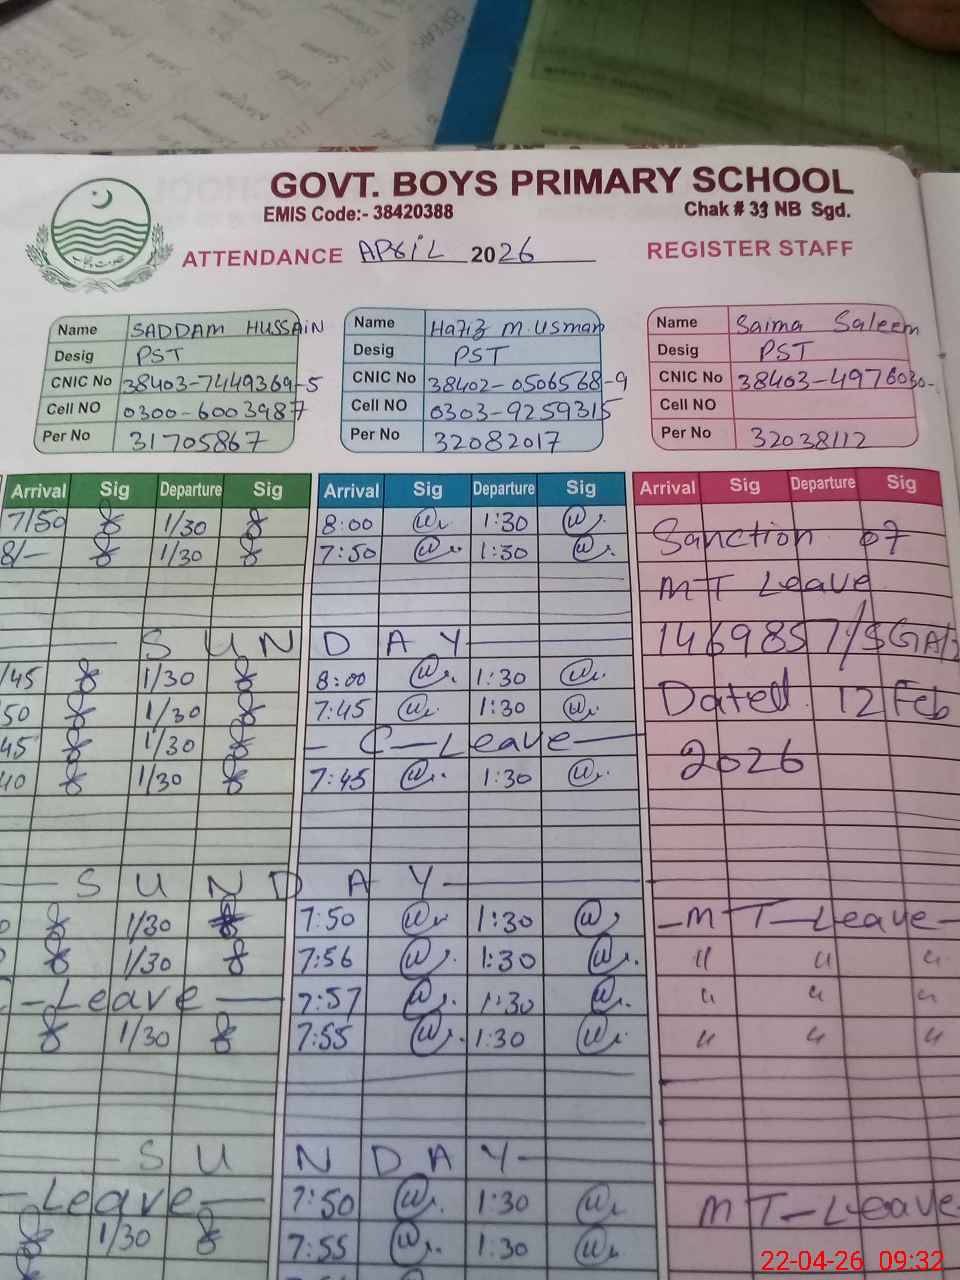 GOVT. BOYS PRIMARY SCHOOL
EMIS Code:- 38420388 Chak # 39 NB Sgd.
ATTENDANCE APRIL 2026 REGISTER STAFF
Name SADDAM HUSSAIN Name Hafiz M. Usman Name Saima Saleem
Desig PST Desig PST Desig PST
CNIC No 38403-7449369-5 CNIC No 38402-0506568-9 CNIC No 38403-4976030-
Cell NO 0300-6003987 Cell NO 0303-9259315 Cell NO
Per No 31705867 Per No 32082017 Per No 32038112
Arrival Sig Departure Sig Arrival Sig Departure Sig Arrival Sig Departure Sig
7/50 1/30 8:00 1:30 Sanction of
8/- 1/30 7:50 1:30
MT Leave
SUNDAY 1469857/SGA/
/45 1/30 8:00 1:30
50 1/30 7:45 1:30 Dated 12 Feb
45 1/30 - C-Leave - 2026
40 1/30 7:45 1:30
SUNDAY
1/30 7:50 1:30 -MT-Leave-
1/30 7:56 1:30 " " "
-Leave- 7:57 1:30 " " "
1/30 7:55 1:30 " " "
SUNDAY
-Leave- 7:50 1:30 MT-Leave
1/30 7:55 1:30
22-04-26 09:32